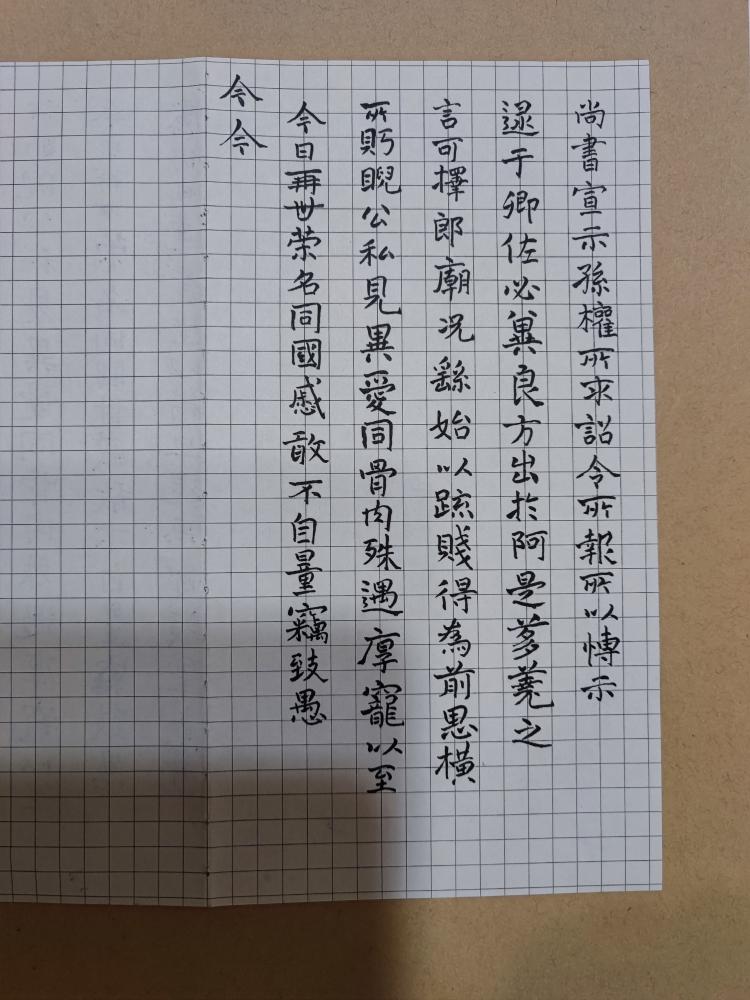 尚書宣示孫權所求詔令所報所以慱示
逮于卿佐必兾良方出於阿是蒭蕘之
言可擇郎廟况繇始以疏賤得為前恩橫
所眄睨公私見異愛同骨肉殊遇厚寵以至
今日再世荣名同國慼敢不自量竊致愚
今今